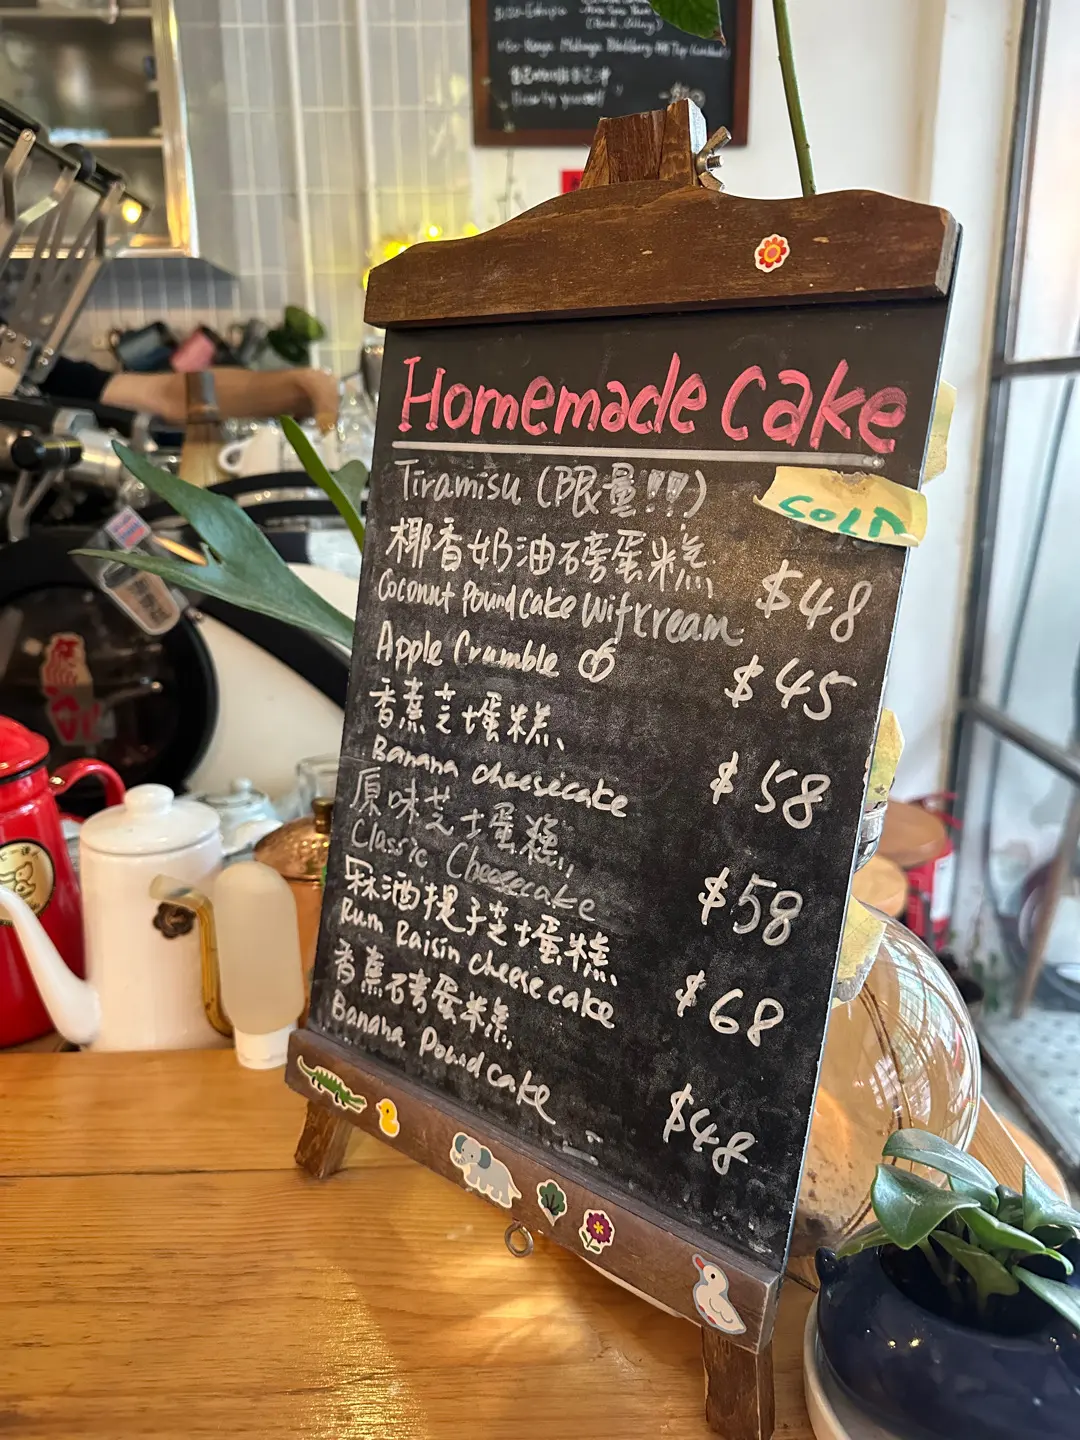 Homemade Cake
Tiramisu (限量!!!)
SOLD
椰香奶油磅蛋糕
Coconut Pound Cake Wif cream
$48
Apple Crumble
$45
香蕉芝士蛋糕
Banana cheesecake
$58
原味芝士蛋糕
Classic Cheesecake
$58
冧酒提子芝士蛋糕
Rum Raisin cheese cake
$68
香蕉磅蛋糕
Banana Pound cake
$48